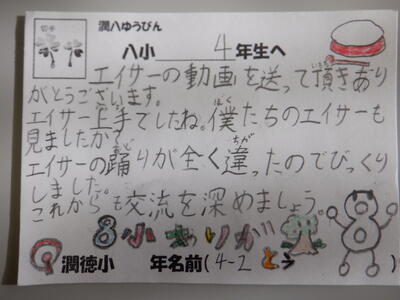 切手
潤八ゆうびん
八小 4年生へ
エイサーの動画を送って頂きあり
がとうございます。
エイサー上手でしたね。僕たちのエイサーも
見ましたか
エイサーの踊りが全く違ったのでびっくり
しました。
これからも交流を深めましょう。
8小ありがとう
潤徳小 年名前(4-2)